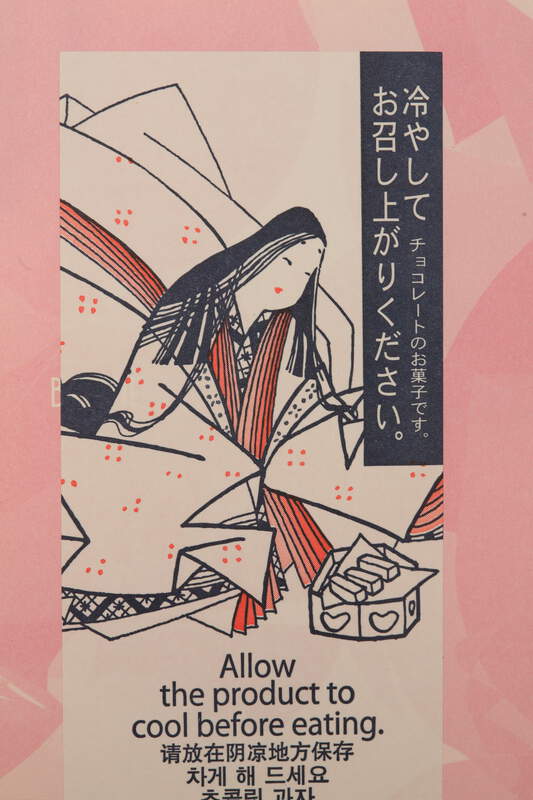 冷やして
お召し上がりください。
チョコレートのお菓子です。
Allow
the product to
cool before eating.
请放在阴凉地方保存
차게 해 드세요
초콜릿 과자